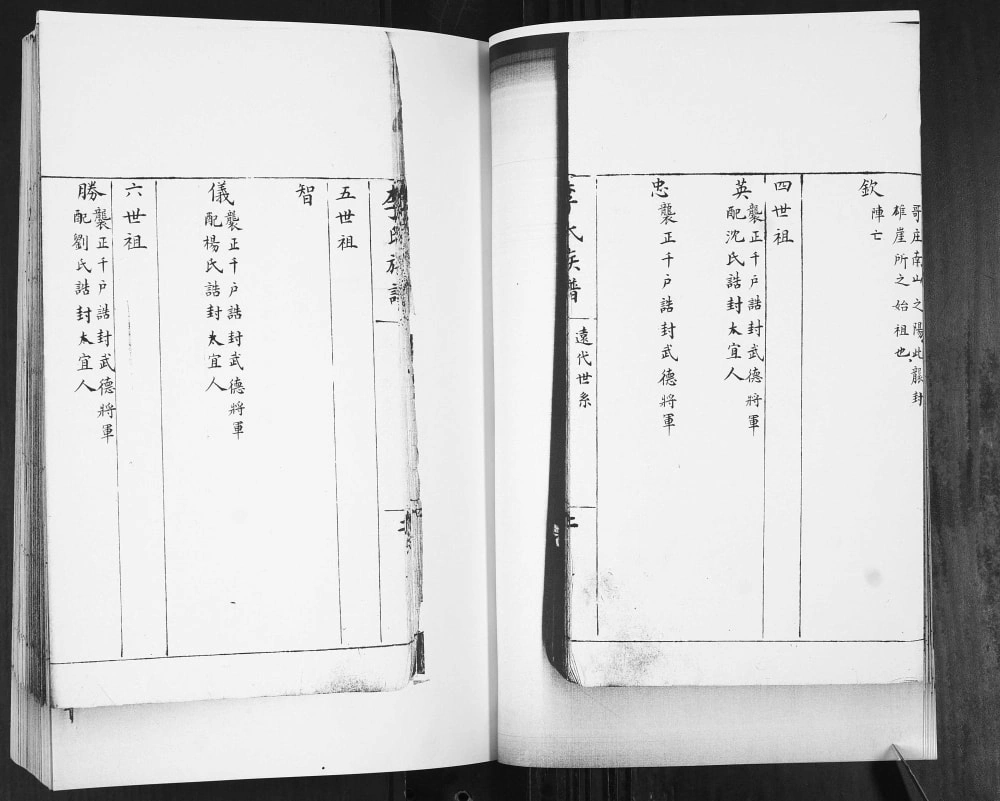 哥庄南山之陽此襲封
雄崖所之始祖也
欽
陣亡
四世祖
英
襲正千户誥封武德將軍
配沈氏誥封太宜人
忠
襲正千户誥封武德將軍
李氏族譜
遠代世系
二
李氏族譜
五世祖
智
儀
襲正千户誥封武德將軍
配楊氏誥封太宜人
六世祖
勝
襲正千户誥封武德將軍
配劉氏誥封太宜人